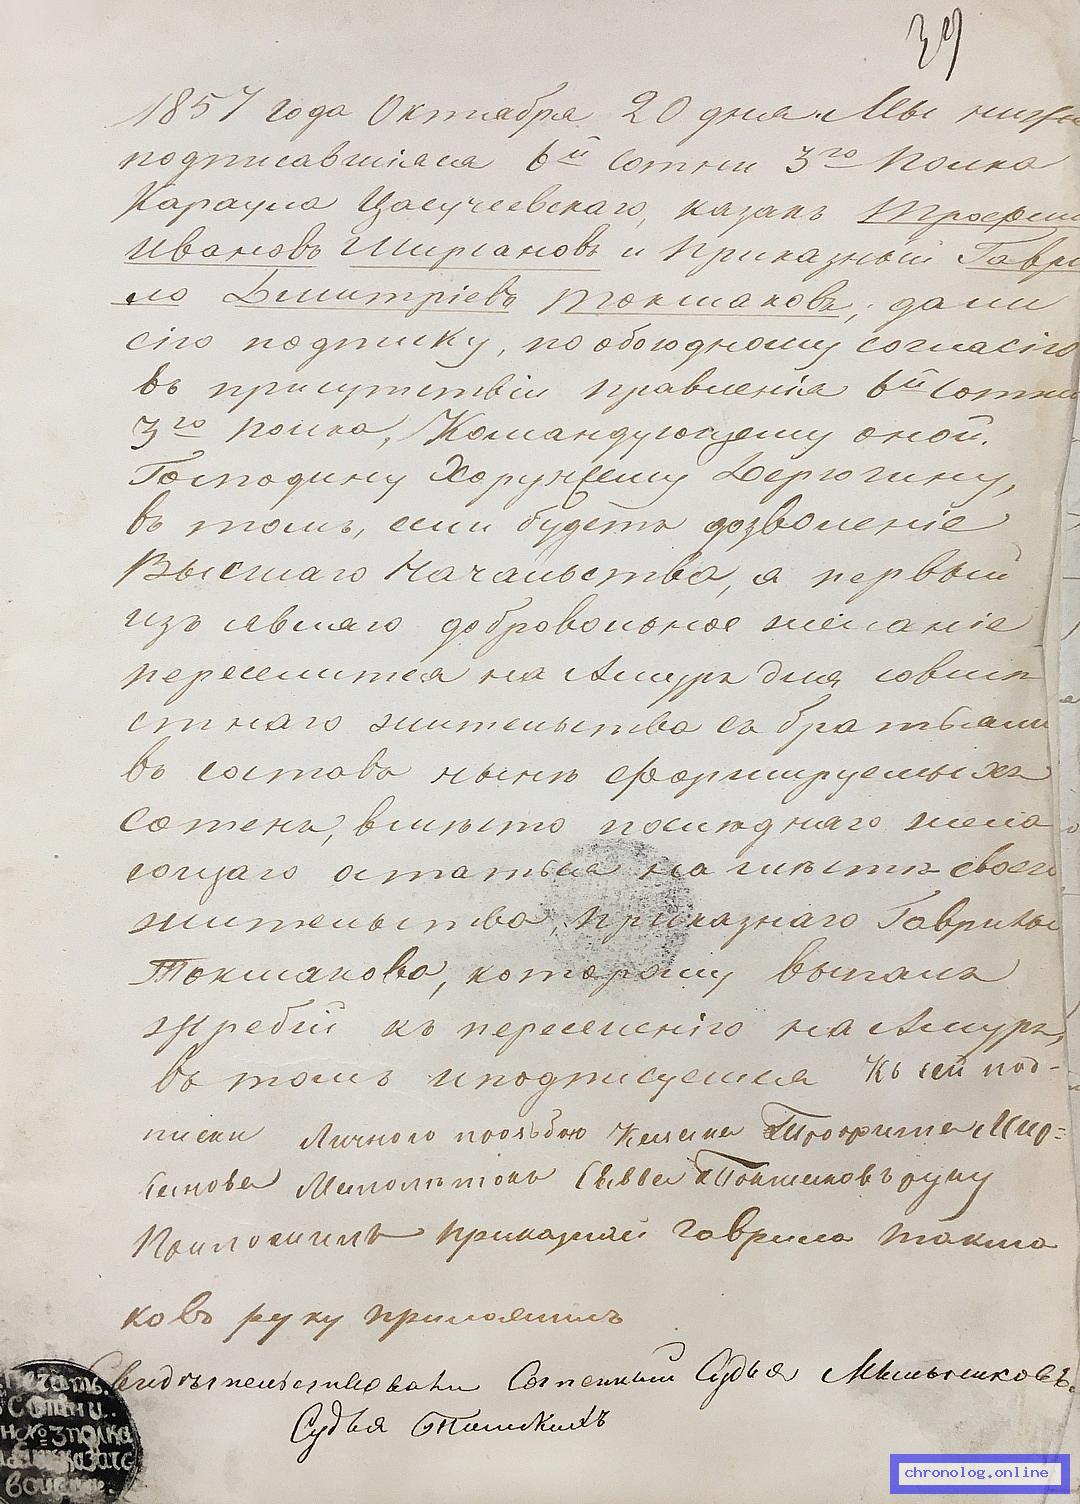 39
1857 года Октября 20 дня. Мы ниже
подписавшіяся 6й Сотни 3го Полка
Караула Цасучеевскаго, казакъ Трофим
Ивановъ Ширяновъ и Приказный Гаври
ло Дмитріевъ Токмаковъ, дали
сію подписку, по обоюдному согласію
въ присутствіи Правленія 6й Сотни
3го Полка, Командующему оной.
Господину Хорунжему Дерюгину,
въ томъ, если будетъ дозволеніе
Высшаго Начальства, а первый
изъявляю добровольное желаніе
переселится на Амуръ для совмѣ
стнаго жительства съ братьями
въ составъ нынѣ формируемыхъ
Сотенъ, вмѣсто послѣдняго жела
ющаго остаться на мѣстѣ своего
жительства, Приказнаго Гаврилы
Токмакова, которому выпалъ
жребій къ переселенію на Амуръ,
въ томъ и подписуемся Къ сей под-
писки Личною прозьбою Казака Трофима
Савва Токмаковъ руку
Приложилъ Приказной Гаврило Токма
ковъ руку приложилъ
Свидѣтельствовали Сотенный Судья Мыльниковъ.
Судья
Печать
Сотни
№ 3 полка
казачь
войска
chronolog.online